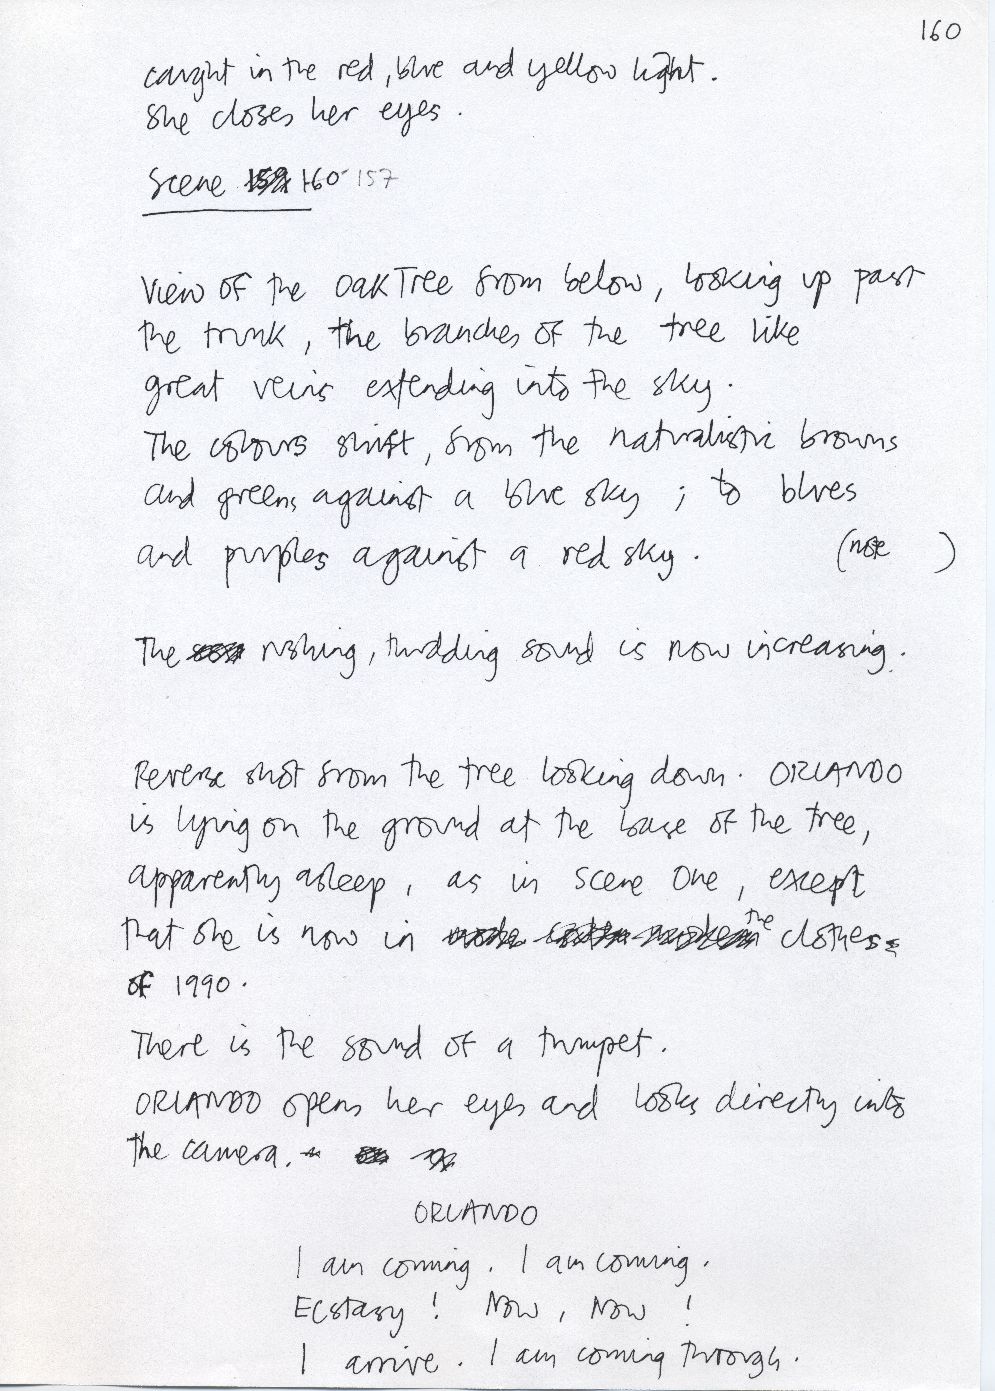 160
caught in the red, blue and yellow light.
She closes her eyes.
Scene 159 160 157
View of the Oak Tree from below, looking up past
the trunk, the branches of the tree like
great veins extending into the sky.
The colours shift, from the naturalistic browns
and greens against a blue sky ; to blues
and purples against a red sky. (note )
The rushing, thudding sound is now increasing.
Reverse shot from the tree looking down. ORLANDO
is lying on the ground at the base of the tree,
apparently asleep, as in Scene One, except
that she is now in the clothes
of 1990.
There is the sound of a trumpet.
ORLANDO opens her eyes and looks directly into
the camera.
ORLANDO
I am coming. I am coming.
Ecstasy! Now, Now !
I arrive. I am coming through.